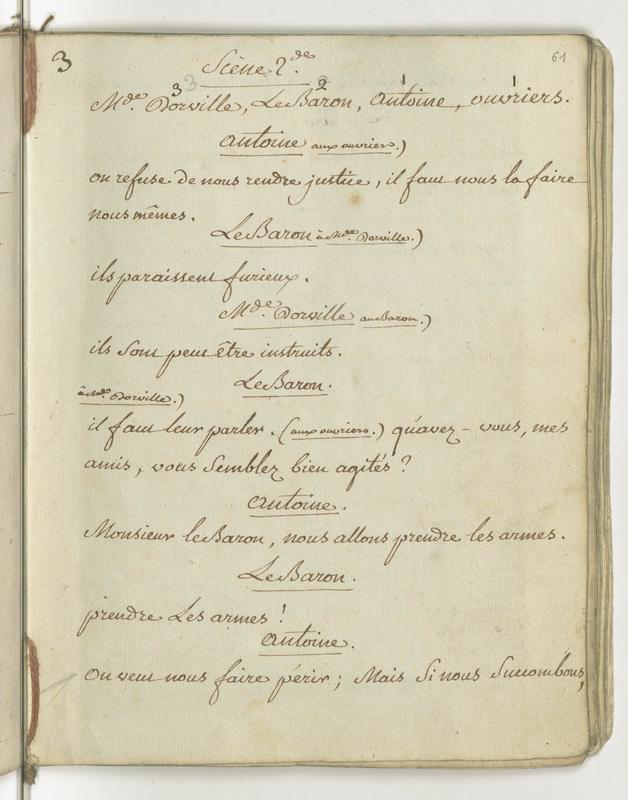 3
61
Scène 2.de
3 2 1 1
Mde. Dorville, Le Baron, antoine, ouvriers.
antoine aux ouvriers.)
on refuse de nous rendre justice, il faut nous la faire
nous mêmes.
Le Baron à Mde. Dorville.)
ils paraissent furieux.
Mde. Dorville au Baron.)
ils sont peut être instruits.
Le Baron.
à Mde. Dorville.)
il faut leur parler. (aux ouvriers.) qu'avez-vous, mes
amis, vous semblez bien agités ?
antoine.
Monsieur le Baron, nous allons prendre les armes.
Le Baron.
prendre Les armes !
antoine.
on veut nous faire périr ; Mais Si nous Succombons,